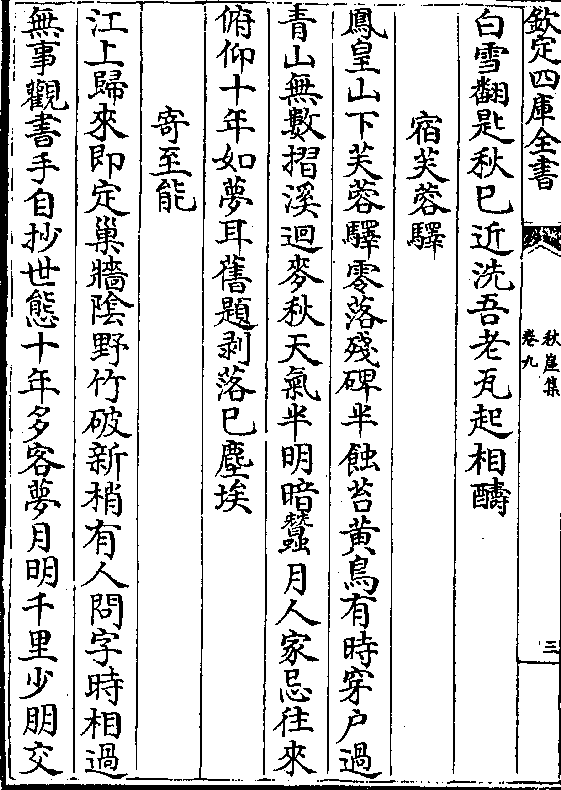 欽定四庫全書
秋崖集
卷九
三
白雪翻匙秋已近洗吾老瓦起相酧
宿芙蓉驛
鳳皇山下芙蓉驛零落殘碑半蝕苔黄鳥有時穿户過
青山無數摺溪迴麥秋天氣半明暗蠶月人家忌往來
俯仰十年如夢耳舊題剥落已塵埃
寄至能
江上歸來即定巢牆陰野竹破新梢有人問字時相過
無事觀書手自抄世態十年多客夢月明千里少朋交